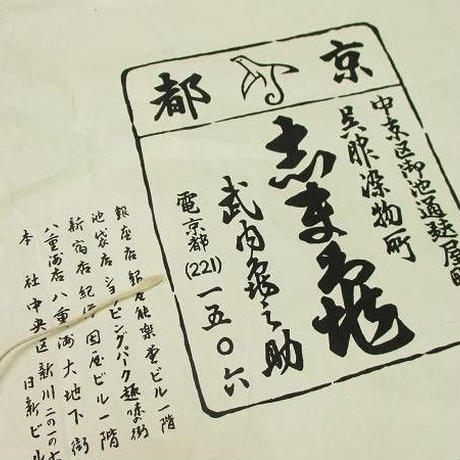 京都
中京区御池通麸屋町
呉服染物町
志ま亀
武内亀之助
電京都(221)一五〇六
銀座店 銀座能楽堂ビル一階
池袋店 ショッピングパーク趣味の街
新宿店 紀伊国屋ビル一階
八重洲店 八重洲大地下街
本社 中央区新川二の一の
日新ビル